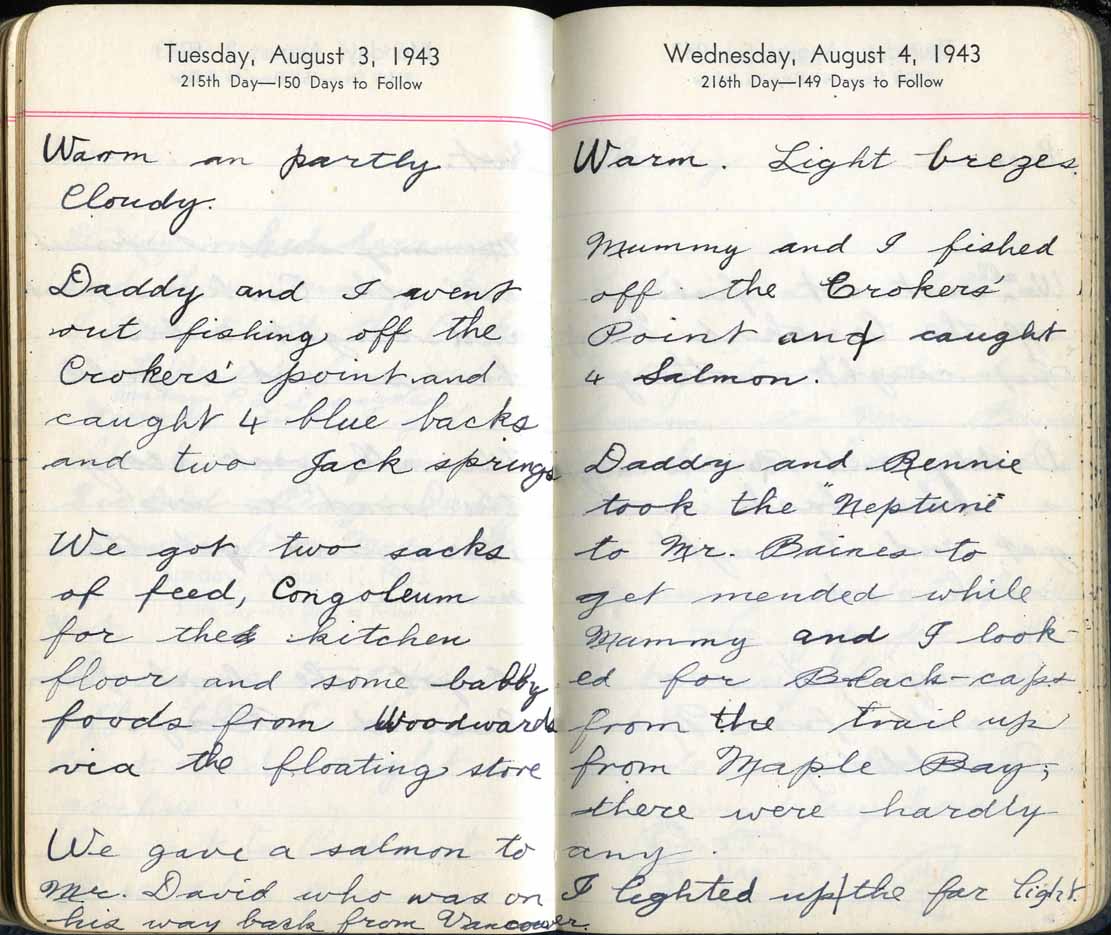 Tuesday, August 3, 1943
215th Day—150 Days to Follow
Warm an partly
Cloudy.
Daddy and I went
out fishing off the
Crokers' point and
caught 4 blue backs
and two Jack springs
We got two sacks
of feed, Congoleum
for the kitchen
floor and some babby
foods from Woodwards
via the floating store
We gave a salmon to
Mr. David who was on
his way back from Vancouver.
Wednesday, August 4, 1943
216th Day—149 Days to Follow
Warm. Light brezes.
Mummy and I fished
off the Crokers'
Point and caught
4 Salmon.
Daddy and Rennie
took the "Neptune"
to Mr. Baines to
get mended while
Mummy and I look-
ed for Black-caps
from the trail up
from Maple Bay;
there were hardly
any.
I lighted up the far light.